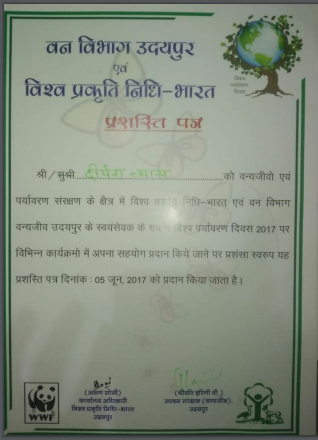 वन विभाग उदयपुर
एवं
विश्व प्रकृति निधि-भारत
विश्व
पर्यावरण
दिवस
प्रशस्ति पत्र
श्री/सुश्री दीपेश व्यास को वन्यजीवो एवं
पर्यावरण संरक्षण के क्षेत्र में विश्व प्रकृति निधि-भारत एवं वन विभाग
वन्यजीव उदयपुर के स्वयंसेवक के रूप में विश्व पर्यावरण दिवस 2017 पर
विभिन्न कार्यक्रमो में अपना सहयोग प्रदान किये जाने पर प्रशंसा स्वरुप यह
प्रशस्ति पत्र दिनांक : 05 जून, 2017 को प्रदान किया जाता है।
(अरूण सोनी)
कार्यालय अधिकारी
विश्व प्रकृति निधि-भारत
उदयपुर
(श्रीमति हरिणी वी.)
उपवन संरक्षक (वन्यजीव),
उदयपुर
WWF